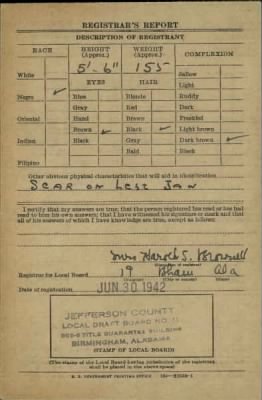 REGISTRAR'S REPORT
DESCRIPTION OF REGISTRANT
RACE HEIGHT (Approx.) WEIGHT (Approx.) COMPLEXION
5'-6" 155
White Sallow
EYES HAIR Light
Negro ✓ Blue Blonde Ruddy
Gray Red Dark
Oriental Hazel Brown Freckled
Brown ✓ Black ✓ Light brown
Indian Black Gray Dark brown ✓
Bald Black
Filipino
Other obvious physical characteristics that will aid in identification
SCAR ON LEFT JAW
I certify that my answers are true; that the person registered has read or has had
read to him his own answers; that I have witnessed his signature or mark and that
all of his answers of which I have knowledge are true, except as follows:
Mrs Harold S.
(Signature of registrar)
Registrar for Local Board 19 Bham Ala
Date of registration JUN 30 1942
JEFFERSON COUNTY
LOCAL DRAFT BOARD NO.
TITLE GUARANTEE BUILDING
BIRMINGHAM, ALABAMA
(STAMP OF LOCAL BOARD)
(The stamp of the Local Board having jurisdiction of the registrant
shall be placed in the above space)
U. S. GOVERNMENT PRINTING OFFICE